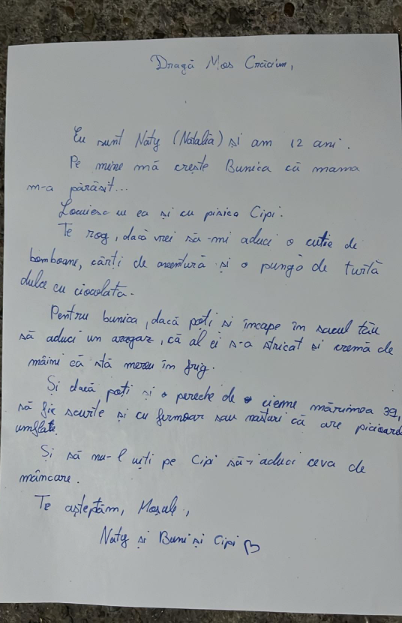 Dragă Moș Crăciun,
Eu sunt Naty (Natalia) și am 12 ani.
Pe mine mă crește Bunica că mama
m-a părăsit...
Locuiesc cu ea și cu pisica Cipi.
Te rog, dacă vrei să-mi aduci o cutie de
bomboane, cărți de aventură și o pungă de turtă
dulce cu ciocolată.
Pentru bunica, dacă poți și încape în sacul tău
să aduci un aragaz, că al ei s-a stricat și cremă de
mâini că stă mereu în frig.
Și dacă poți și o pereche de cizme mărimea 39,
să fie scurte și cu fermoar sau nasturi că are picioarele
umflate.
Și să nu-l uiți pe Cipi să-i aduci ceva de
mâncare.
Te așteptăm, Moșule,
Naty și Buni și Cipi